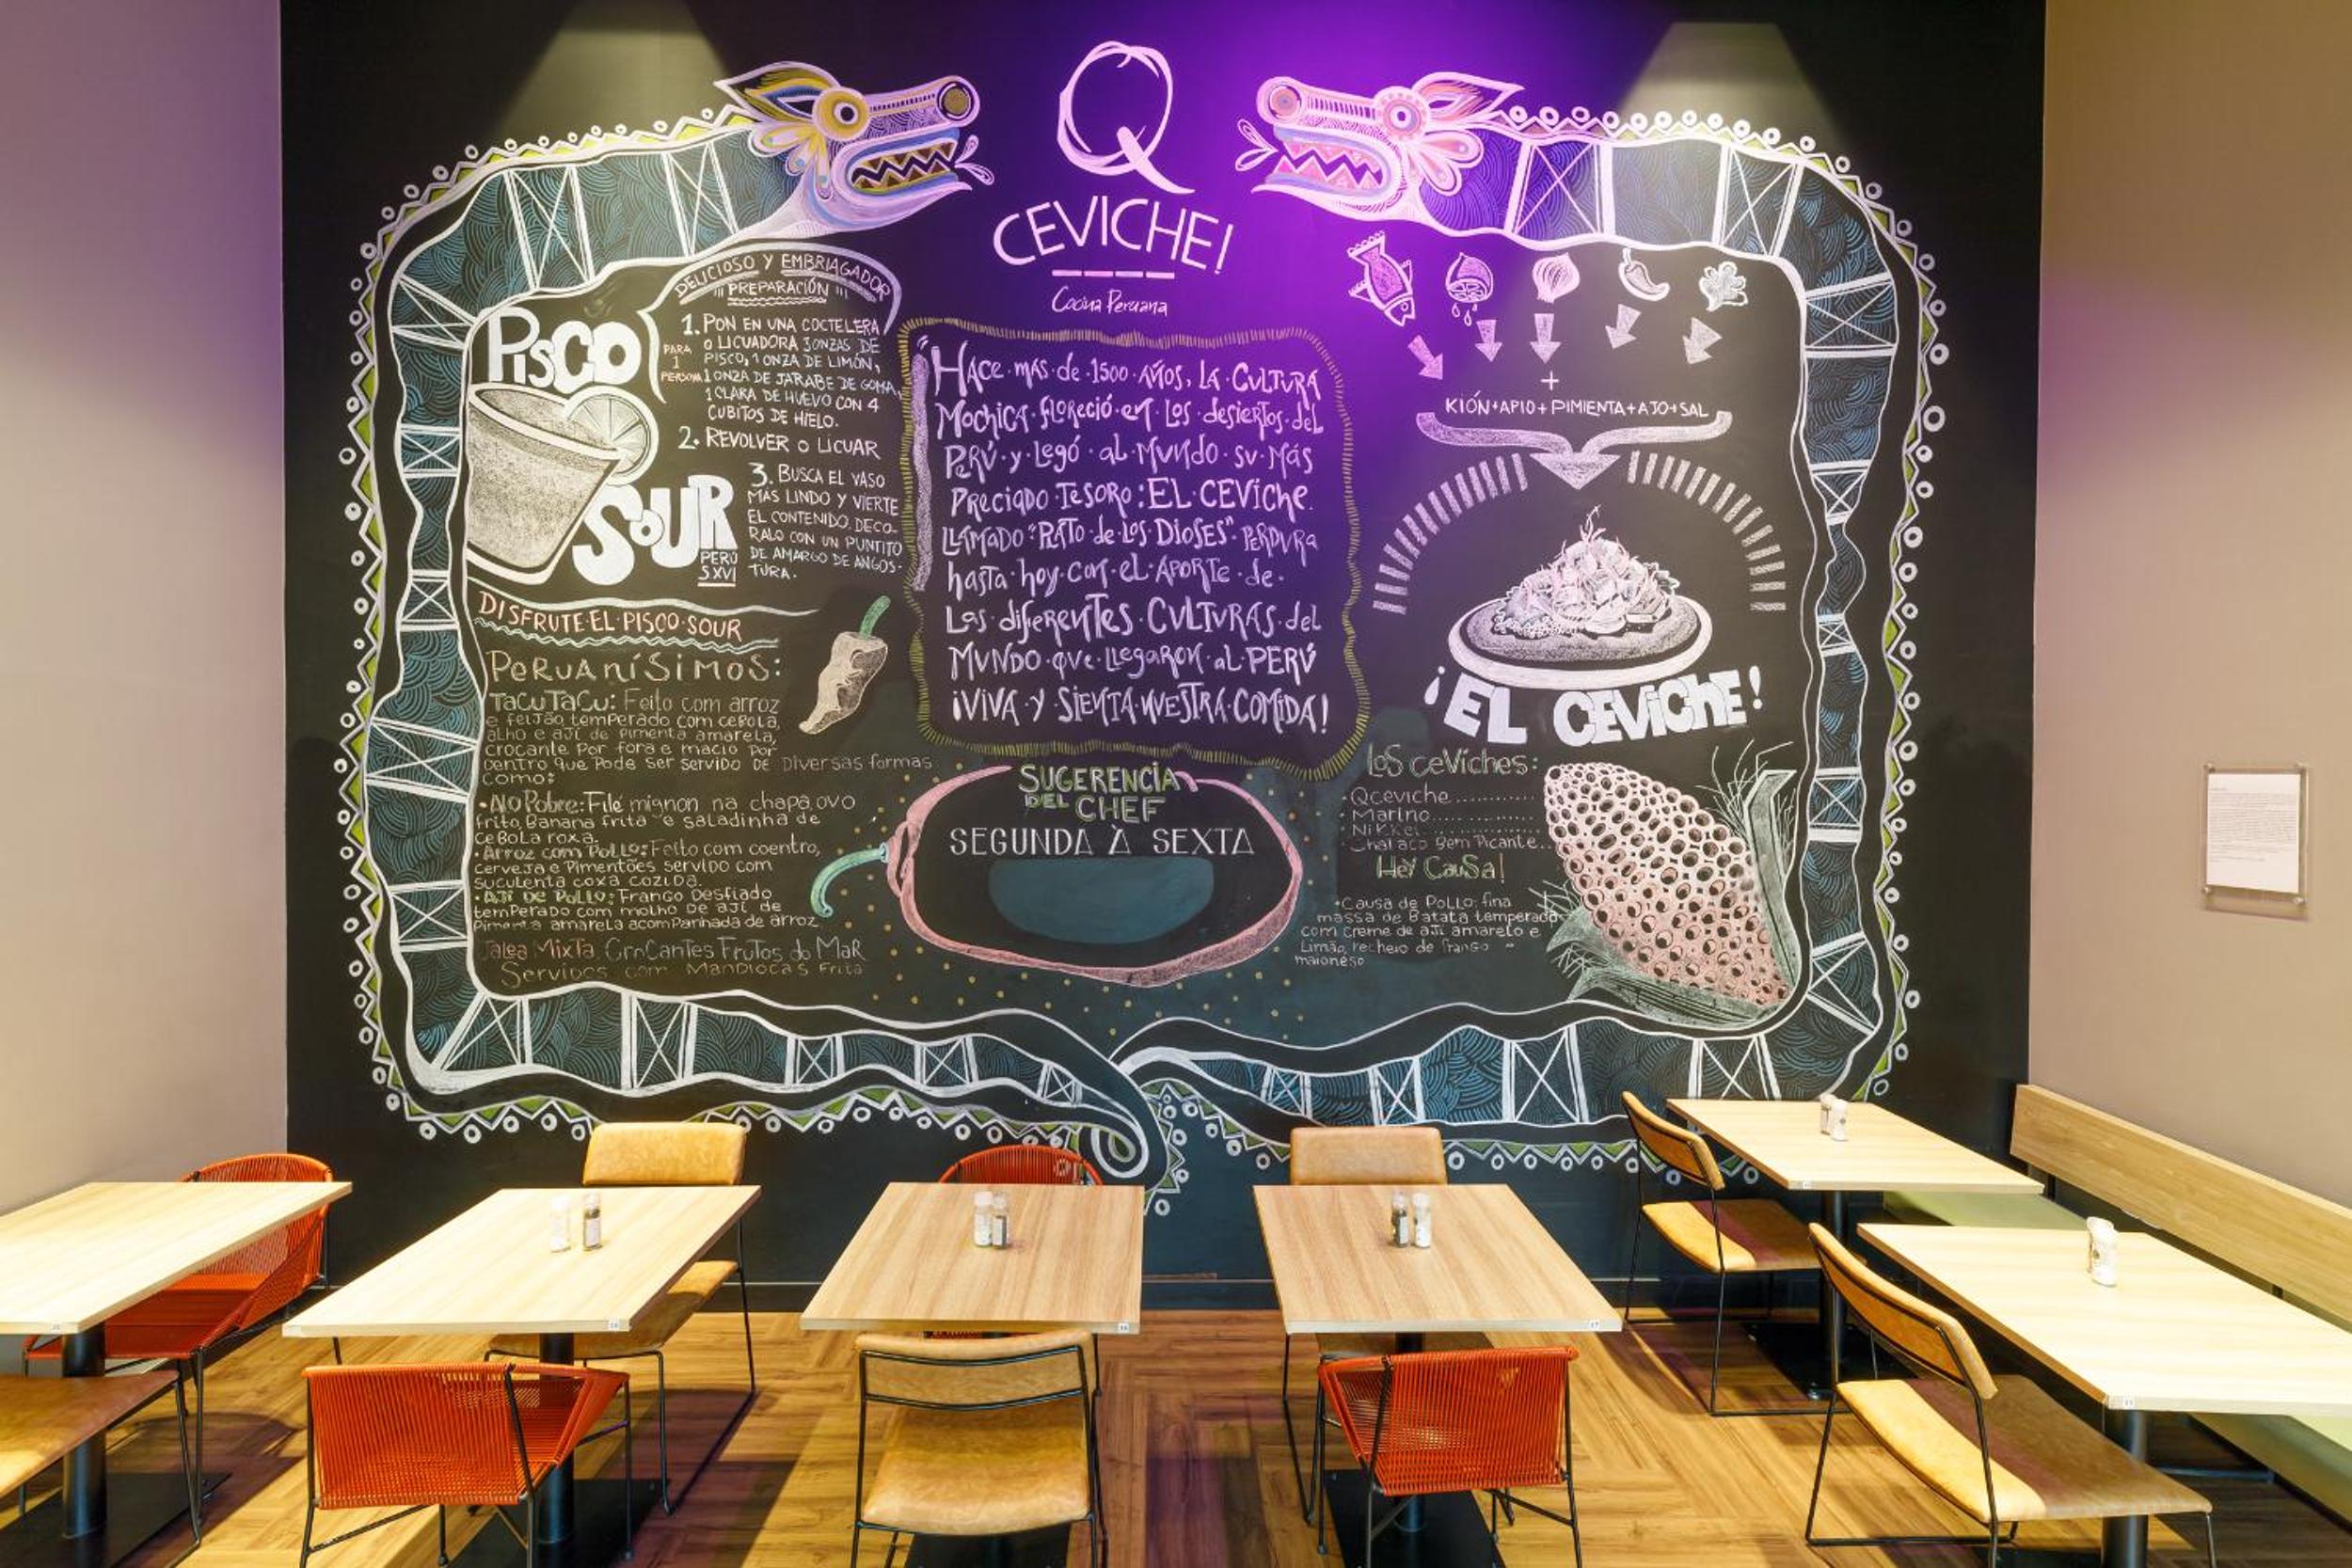 Q
CEVICHE!
Cocina Peruana
DELICIOSO Y EMBRIAGADOR
PREPARACIÓN
PISCO
SOUR
PERÚ
S.XVI
PARA
1
PERSONA
1. PON EN UNA COCTELERA
O LICUADORA 3 ONZAS DE
PISCO, 1 ONZA DE LIMÓN,
1 ONZA DE JARABE DE GOMA,
1 CLARA DE HUEVO CON 4
CUBITOS DE HIELO.
2. REVOLVER O LICUAR
3. BUSCA EL VASO
MÁS LINDO Y VIERTE
EL CONTENIDO. DECO-
RALO CON UN PUNTITO
DE AMARGO DE ANGOS-
TURA.
DISFRUTE·EL·PISCO·SOUR
PERUANÍSIMOS:
TACUTACU: Feito com arroz
e feijão temperado com cebola,
alho e ají de pimenta amarela,
crocante por fora e macio por
dentro que pode ser servido de diversas formas
como:
·A lo Pobre: Filé mignon na chapa, ovo
frito, Banana frita e saladinha de
cebola roxa.
·Arroz com Pollo: Feito com coentro,
cerveja e Pimentões servido com
suculenta coxa cozida.
·Ají de Pollo: Frango Desfiado
temperado com molho de ají de
Pimenta amarela acompanhada de arroz
Jalea Mixta. Crocantes Frutos do Mar
Servidos com Mandiocas Frita
HACE·MÁS·DE·1500·AÑOS, LA·CULTURA
MOCHICA·FLORECIÓ·EN·LOS·DESIERTOS·DEL
PERÚ·Y·LEGÓ·AL·MUNDO·SU·MÁS
PRECIADO·TESORO: EL·CEVICHE.
LLAMADO·"PLATO·DE·LOS·DIOSES"·PERDURA
HASTA·HOY·CON·EL·APORTE·DE·
LAS·DIFERENTES·CULTURAS·DEL
MUNDO·QUE·LLEGARON·AL·PERÚ
¡VIVA·Y·SIENTA·NUESTRA·COMIDA!
SUGERENCIA
DEL CHEF
SEGUNDA À SEXTA
+
KIÓN+APIO+PIMIENTA+AJO+SAL
¡EL CEVICHE!
Los ceviches:
·Qceviche..........
·Marino............
·Nikkei............
·Chalaco Bem Picante..
Hey Causa!
·Causa de Pollo: fina
massa de Batata temperada
com creme de ají amarelo e
Limão, recheio de frango e
maionese